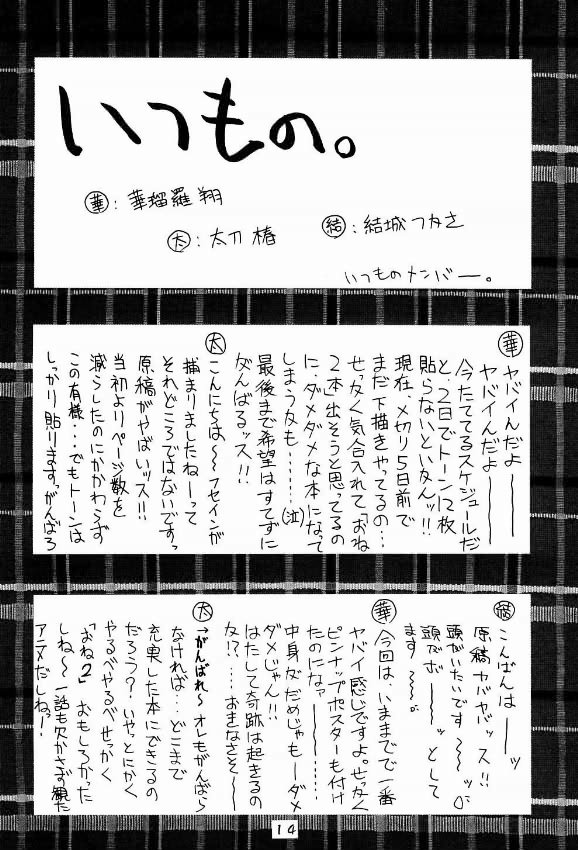 いつもの。
華：華瑠羅翔
太：太刀椿
結：結城つかさ
いつものメンバー。
華
ヤバイんだよ───
ヤバイんだよ───
今たててるスケジュールだ
と、2日でトーン12枚
貼らないといかん ッ!!
現在、〆切り5日前で
まだ下描きやってるの…
せっかく気合入れて「おね
2本」出そうと思ってるの
に、ダメダメな本になって
しまうカも………(泣)
最後まで希望はすてずに
がんばるッス!!
太
こんにちは〜〜フセインが
捕まりましたねーって
それどころではないですっ
原稿がやばいッス!!
当初よりページ数を
減らしたのにかかわらず
この有様…でもトーンは
しっかり貼りますっがんばろ
結
こんばんは───ッ
原稿ヤバヤバッス!!
頭がいたいです〜〜〜ッ
頭でボ───ッとして
ます〜〜
華
今回は、いままでで一番
ヤバイ感じですよ。せっかく
ピンナップポスターも付け
たのになァ───
中身がだめじゃも─ダメ
ダメじゃん!!
はたして奇跡は起きるの
カ!?…おきなさそ〜〜
太
がんばれ〜オレもがんばら
なければ…どこまで
充実した本にできるの
だろう?いやっとにかく
やるべやるべせっかく
「おね2」おもしろかった
しね〜一話も欠かさず観た
アニメだしねっ!
14